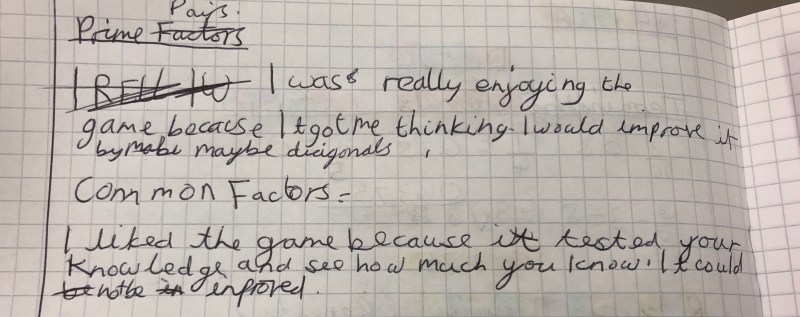 Pairs.
Prime Factors
I was really enjoying the
game because It got me thinking. I would improve it
by maybe diagonals
Common Factors -
I liked the game because it tested your
Knowledge and see how much you know. It could
not be enproved.